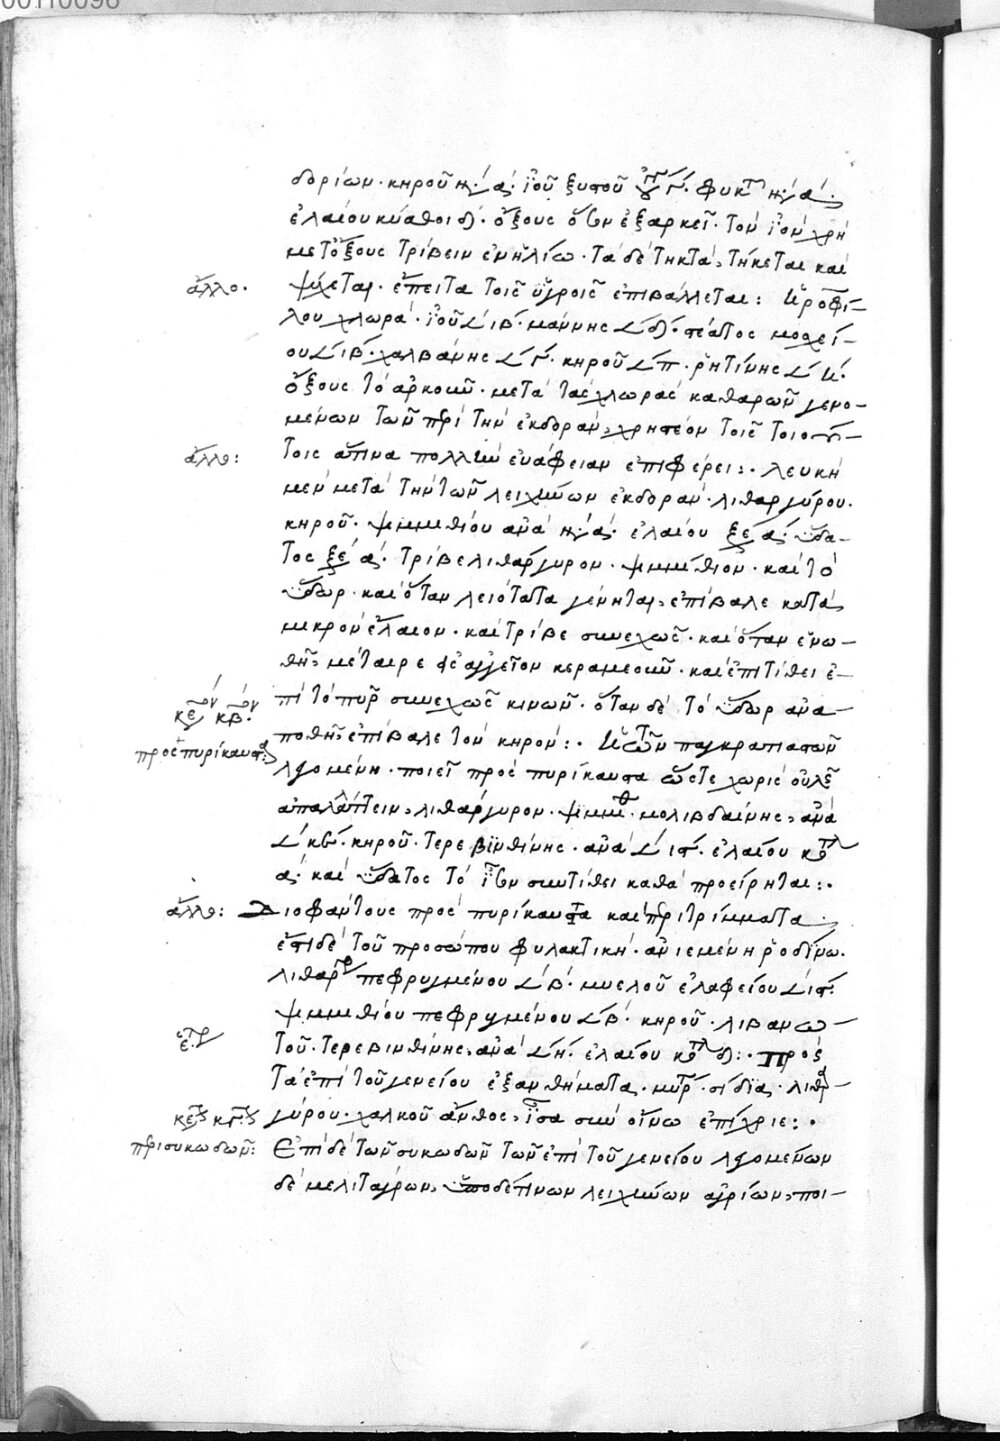 00110098
δορίων· κηροῦ
ἐλαίου κύαθοι δ´· ὄξους ὅσον ἐξαρκεῖ· τὸν ἰὸν χρὴ
μετ' ὄξους τρίβειν ἐν ἡλίῳ· τὰ δὲ τηκτὰ, τήκεται καὶ
ἄλλο· ψύχεται· ἔπειτα τοῖς ὑγροῖς ἐπιβάλλεται: Ἡ ροφί-
λου χλωρά· ἰοῦ ιβ´· μάννης δ´· στέατος μοσχεί-
ου ιβ´· χαλβάνης γ´· κηροῦ π´· ῥητίνης κ´·
ὄξους τὸ ἀρκοῦν· μετὰ τὰς χλωρὰς καθαρῶν γενο-
μένων τῶν περὶ τὴν ἐκδορὰν, χρηστέον τοῖς τοιού-
ἄλλο: τοις ἅτινα πολλὴν ἐνάφειαν ἐπιφέρει:· λευκὴ
μὲν μετὰ τὴν τῶν λειχήνων ἐκδοράν· λιθαργύρου·
κηροῦ· ψιμμιθίου ἀνὰ ἐλαίου ξέ α´· ὕδα-
τος ξέ α´· τρίβε λιθάργυρον· ψιμμίθιον· καὶ τὸ
ὕδωρ· καὶ ὅταν λειότατα γένηται, ἐπίβαλε κατὰ
μικρὸν ἔλαιον· καὶ τρίβε συνεχῶς· καὶ ὅταν ἑνω-
θῇ, μέταιρε εἰς ἀγγεῖον κεραμεοῦν· καὶ ἐπιτίθει ἐ-
πὶ τὸ πῦρ συνεχῶς κινῶν· ὅταν δὲ τὸ ὕδωρ ἀνα-
κβ´·
ποθῇ, ἐπίβαλε τὸν κηρόν:· Ἡ τῶν παγκρατιαστῶν
πρὸς πυρίκαυστα
λεγομένη· ποιεῖ πρὸς πυρίκαυστα ὥστε χωρὶς οὐλῆς
ἀπαλλάττειν, λιθάργυρον· ψιμμιθ· μολιβδαίνης, ἀνὰ
κβ´· κηροῦ· τερεβινθίνης· ἀνὰ ις´· ἐλαίου κοτλ
α´· καὶ ὕδατος τὸ ἴσον συντίθει καθὰ προείρηται:·
ἄλλο: Διοφάντους πρὸς πυρίκαυστα καὶ περιτρίμματα·
ἔστι δὲ τοῦ προσώπου φυλακτική· ἀνιεμένη ῥοδίνῳ·
λιθαργ πεφρυγμένου β´· μυελοῦ ἐλαφείου ις´·
ψιμμιθίου πεφρυγμένου β´· κηροῦ· λιβανω-
ἕτερ τοῦ· τερεβινθίνης, ἀνὰ η´· ἐλαίου κοτλ δ´:· Πρὸς
τὰ ἐπὶ τοῦ γενείου ἐξανθήματα· σίδια· λιθαρ-
κεφ κγ´
γύρου· χαλκοῦ ἄνθος, ἴσα σὺν οἴνῳ ἐπίχριε:·
περὶ συκωδῶν: Ἐπὶ δὲ τῶν συκωδῶν τῶν ἐπὶ τοῦ γενείου λεγομένων
δὲ μελιταγρῶν, ὑπὸ δέ τινων λειχήνων ἀγρίων, ποι-